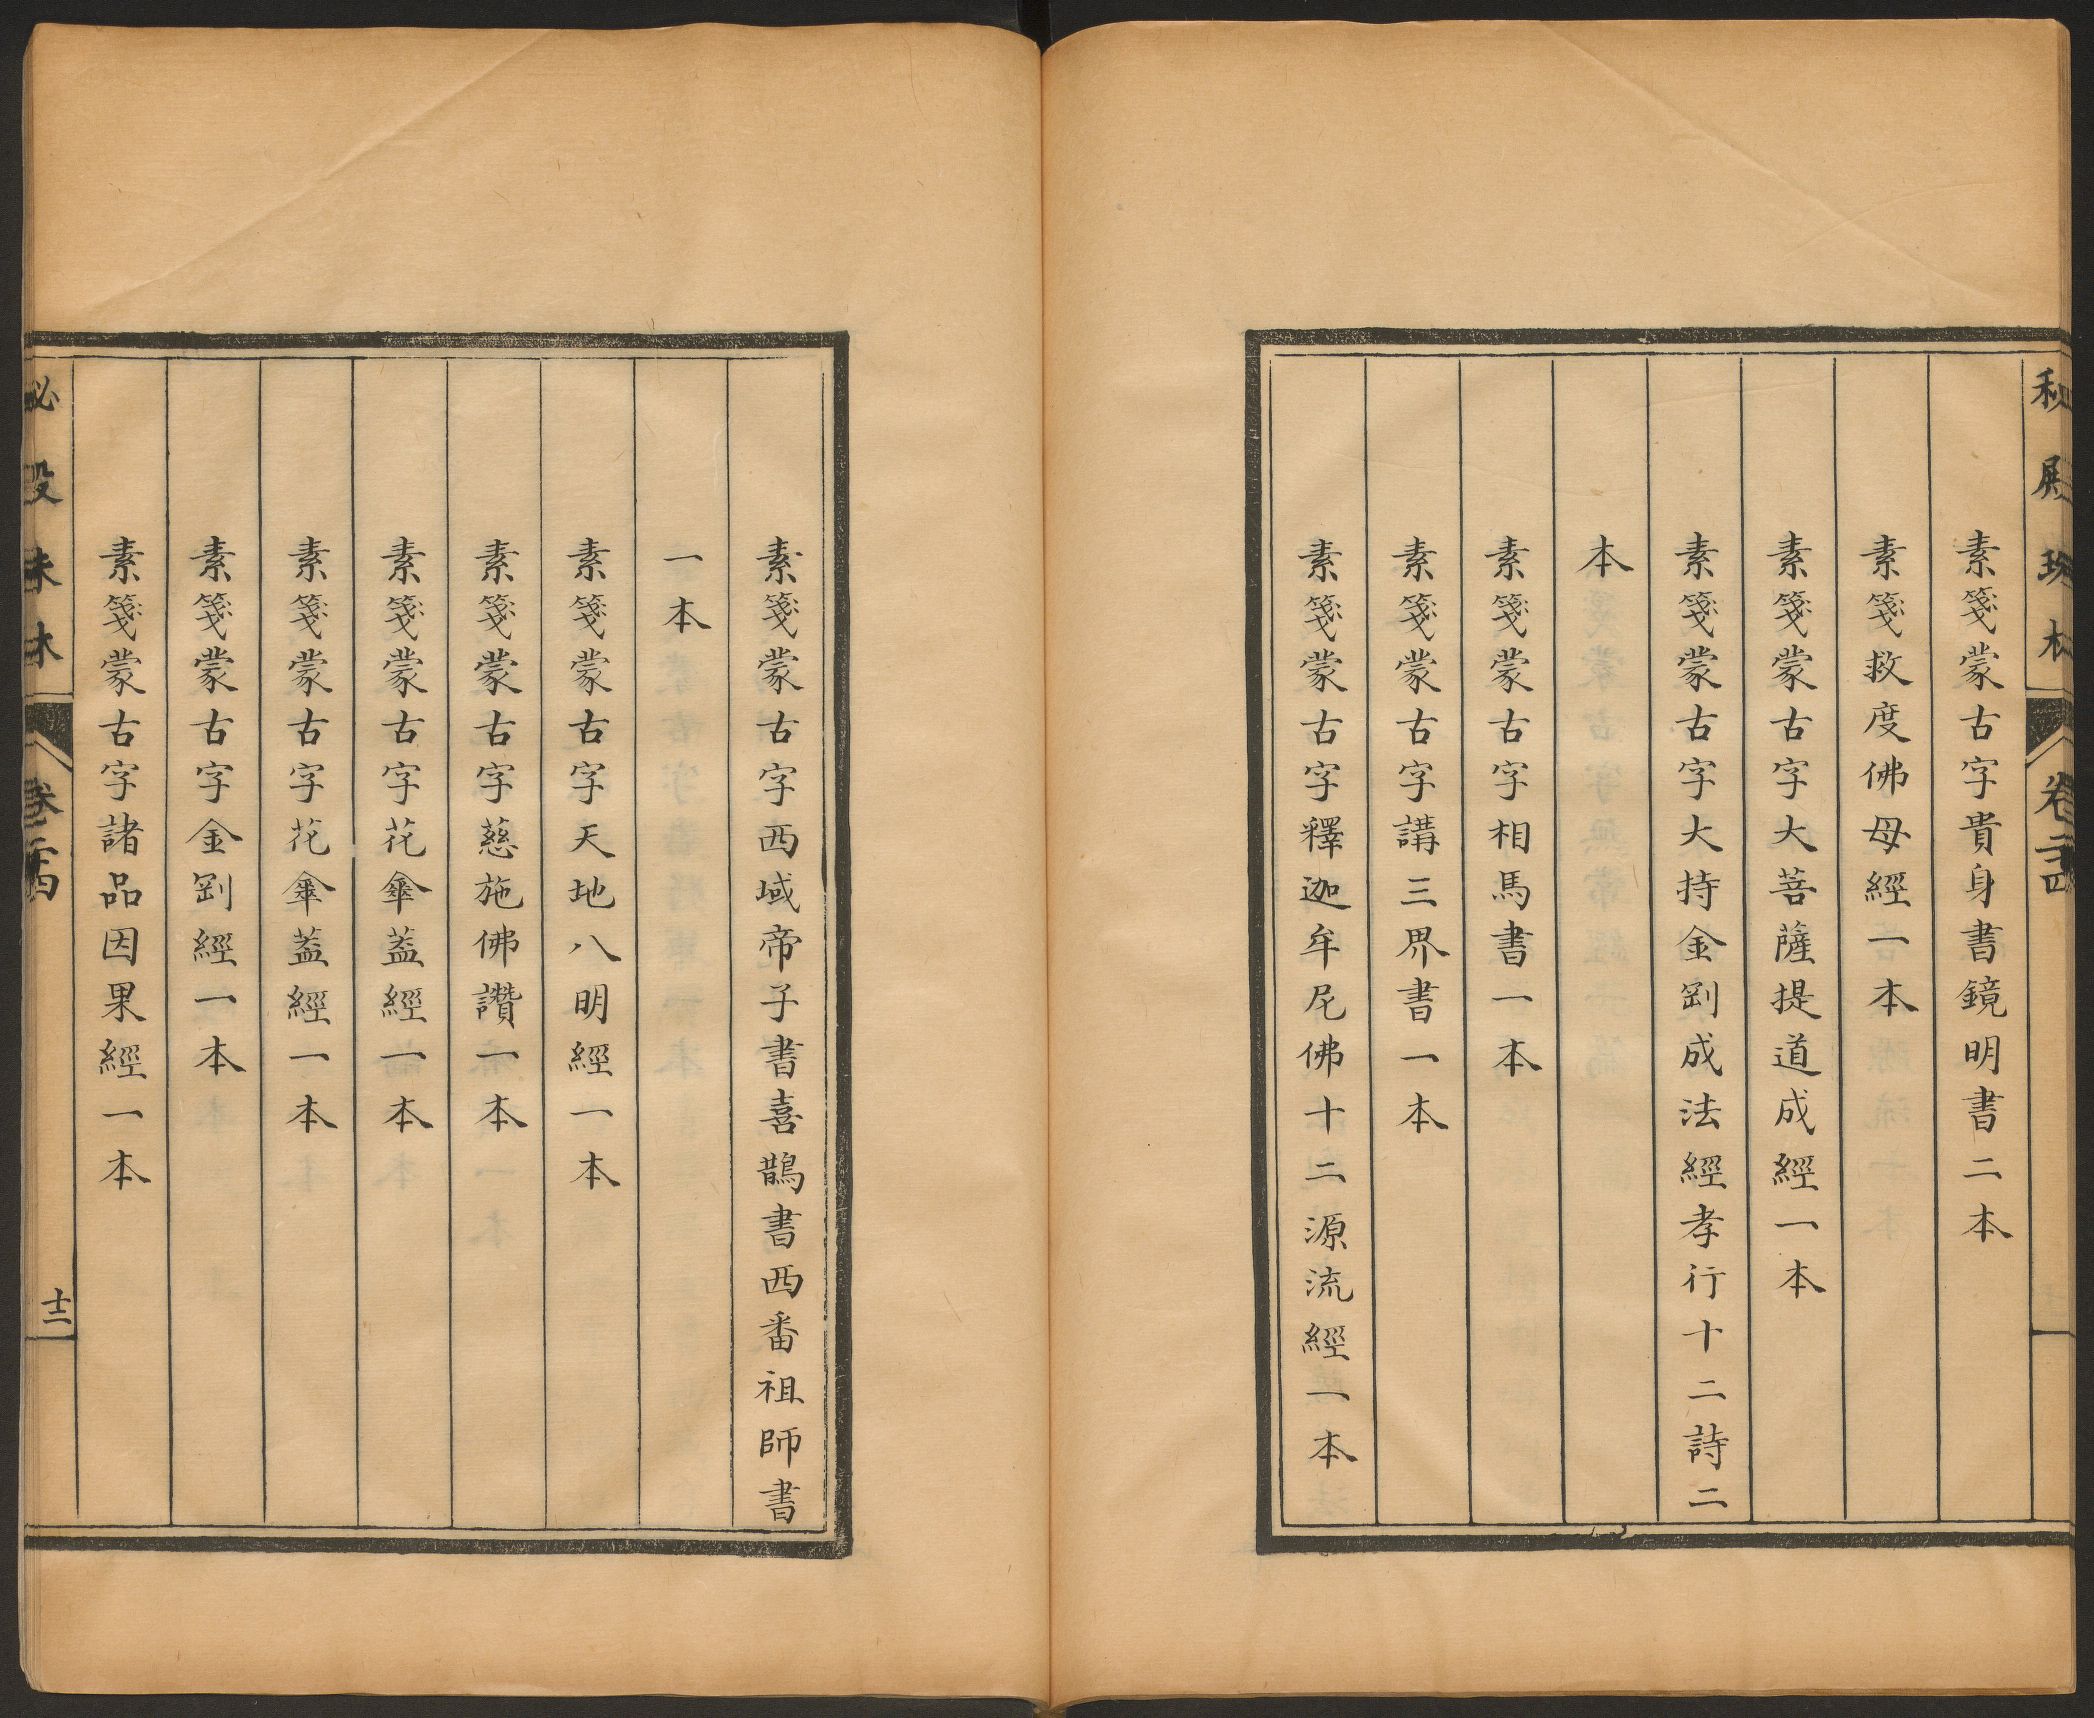 秘殿珠林
卷二十四
素箋蒙古字貴身書鏡明書二本
素箋救度佛母經一本
素箋蒙古字大菩薩提道成經一本
素箋蒙古字大持金剛成法經孝行十二詩二
本
素箋蒙古字相馬書一本
素箋蒙古字講三界書一本
素箋蒙古字釋迦牟尼佛十二源流經一本
素箋蒙古字西域帝子書喜鵲書西番祖師書
一本
素箋蒙古字天地八明經一本
素箋蒙古字慈施佛讚一本
素箋蒙古字花傘葢經一本
素箋蒙古字花傘葢經一本
素箋蒙古字金剛經一本
素箋蒙古字諸品因果經一本
秘殿珠林
卷二十四
十二